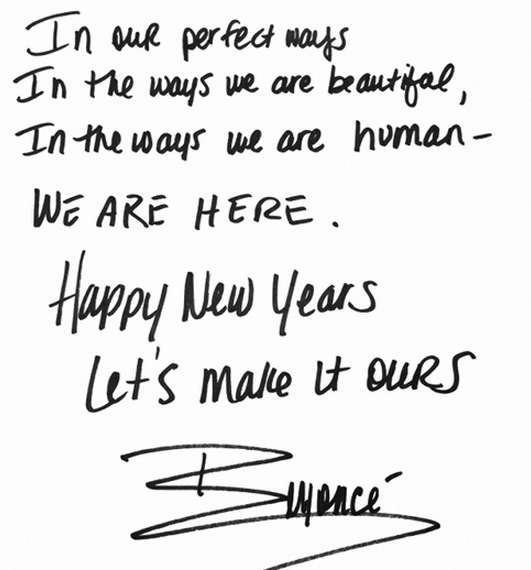 In our perfect ways
In the ways we are beautiful,
In the ways we are human -
WE ARE HERE.
Happy New Years
Let's make it OURS
Beyoncé